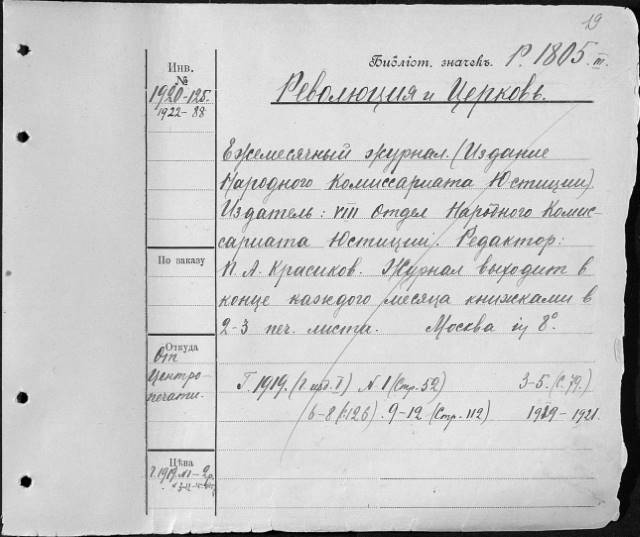 19
Библіот. значекъ. Р. 1805. III.
Инв.
№
1920-125.
1922-88
Революция и Церковь.
Ежемесячный журнал. (Издание
Народного Комиссариата Юстиции).
Издатель: VIII Отдел Народного Комис-
сариата Юстиции. Редактор:
П. А. Красиков. Журнал выходит в
конце каждого месяца книжками в
2-3 печ. листа. Москва in 8°.
По заказу
Откуда
От
Центро-
печати.
Г. 1919. (Г изд. I) N. 1 (Стр. 52) 3-5. (С. 79.)
6-8 (с. 126). 9-12 (Стр. 112) 1919-1921.
Цѣна
Г. 1919 № 1 - 2р.